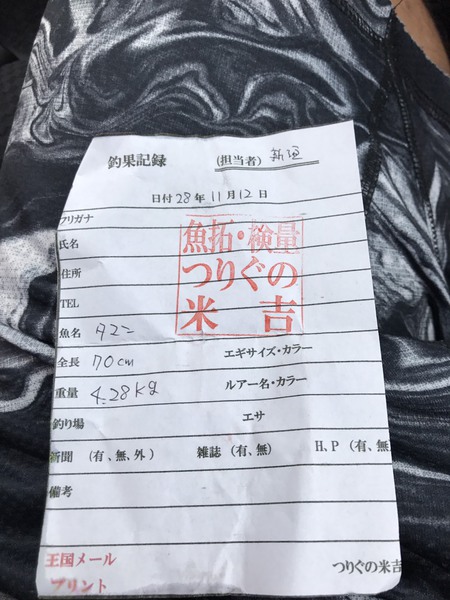 釣果記録 (担当者) 新垣
日付28年11月12日
フリガナ
氏名
住所
TEL
魚拓・検量
つりぐの
米吉
魚名 タマン
全長 70cm エギサイズ・カラー
重量 4.28kg ルアー名・カラー
釣り場 エサ
新聞 (有、無、外) 雑誌 (有、無) H.P (有、無
備考
王国メール
プリント
つりぐの米吉